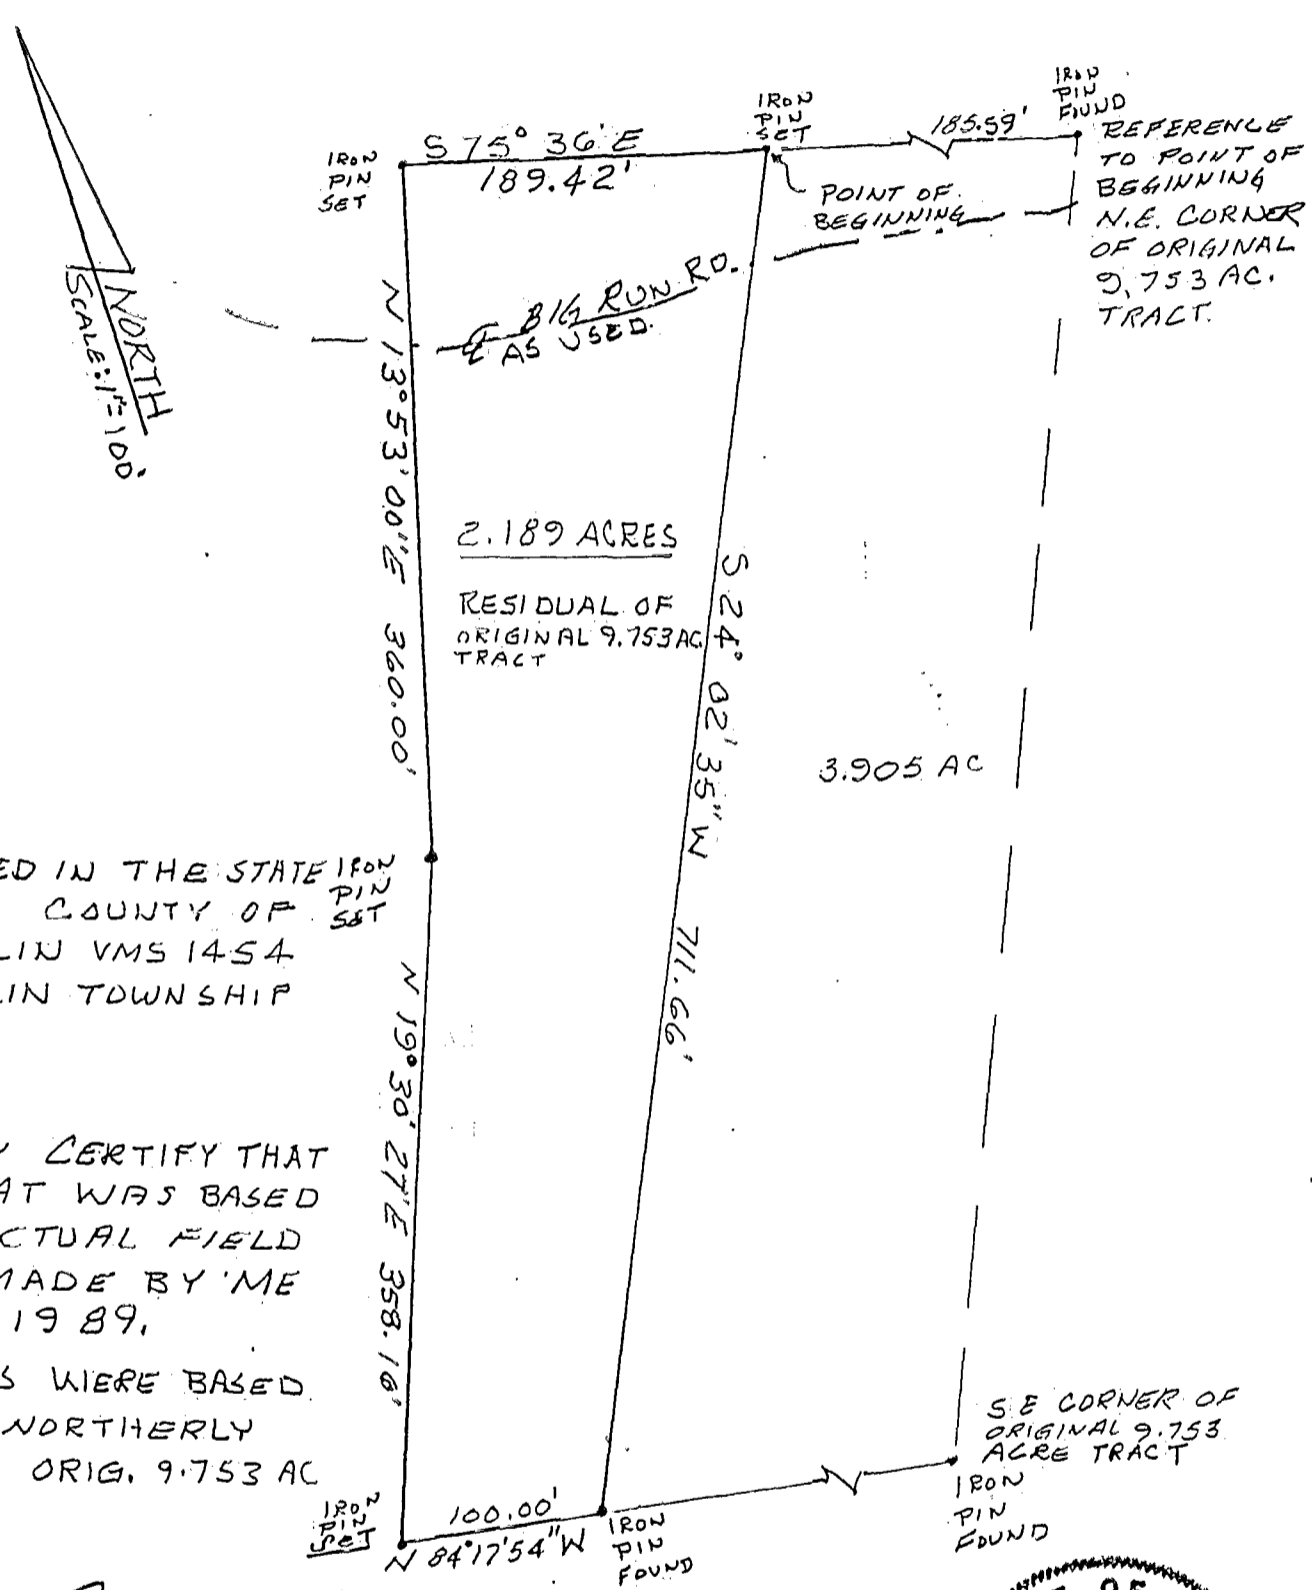 IRON
PIN
FOUND
IRON
PIN
SET
185.59'
REFERENCE
TO POINT OF
BEGINNING
N.E. CORNER
OF ORIGINAL
9.753 AC.
TRACT.
S 75° 36' E
189.42'
IRON
PIN
SET
POINT OF
BEGINNING
NORTH
SCALE: 1"=100'
BIG RUN RD.
℄ AS USED.
N 13° 53' 00" E 360.00'
2.189 ACRES
RESIDUAL OF
ORIGINAL 9.753 AC.
TRACT
S 24° 02' 35" W 711.66'
3.905 AC
ED IN THE STATE
COUNTY OF
LIN VMS 1454
LIN TOWNSHIP
IRON
PIN
SET
N 19° 30' 27" E 358.16'
Y CERTIFY THAT
AT WAS BASED
CTUAL FIELD
MADE BY ME
1989.
S WERE BASED
NORTHERLY
ORIG. 9.753 AC
S.E CORNER OF
ORIGINAL 9.753
ACRE TRACT
IRON
PIN
FOUND
IRON
PIN
SET
100.00'
N 84°17'54" W
IRON
PIN
FOUND